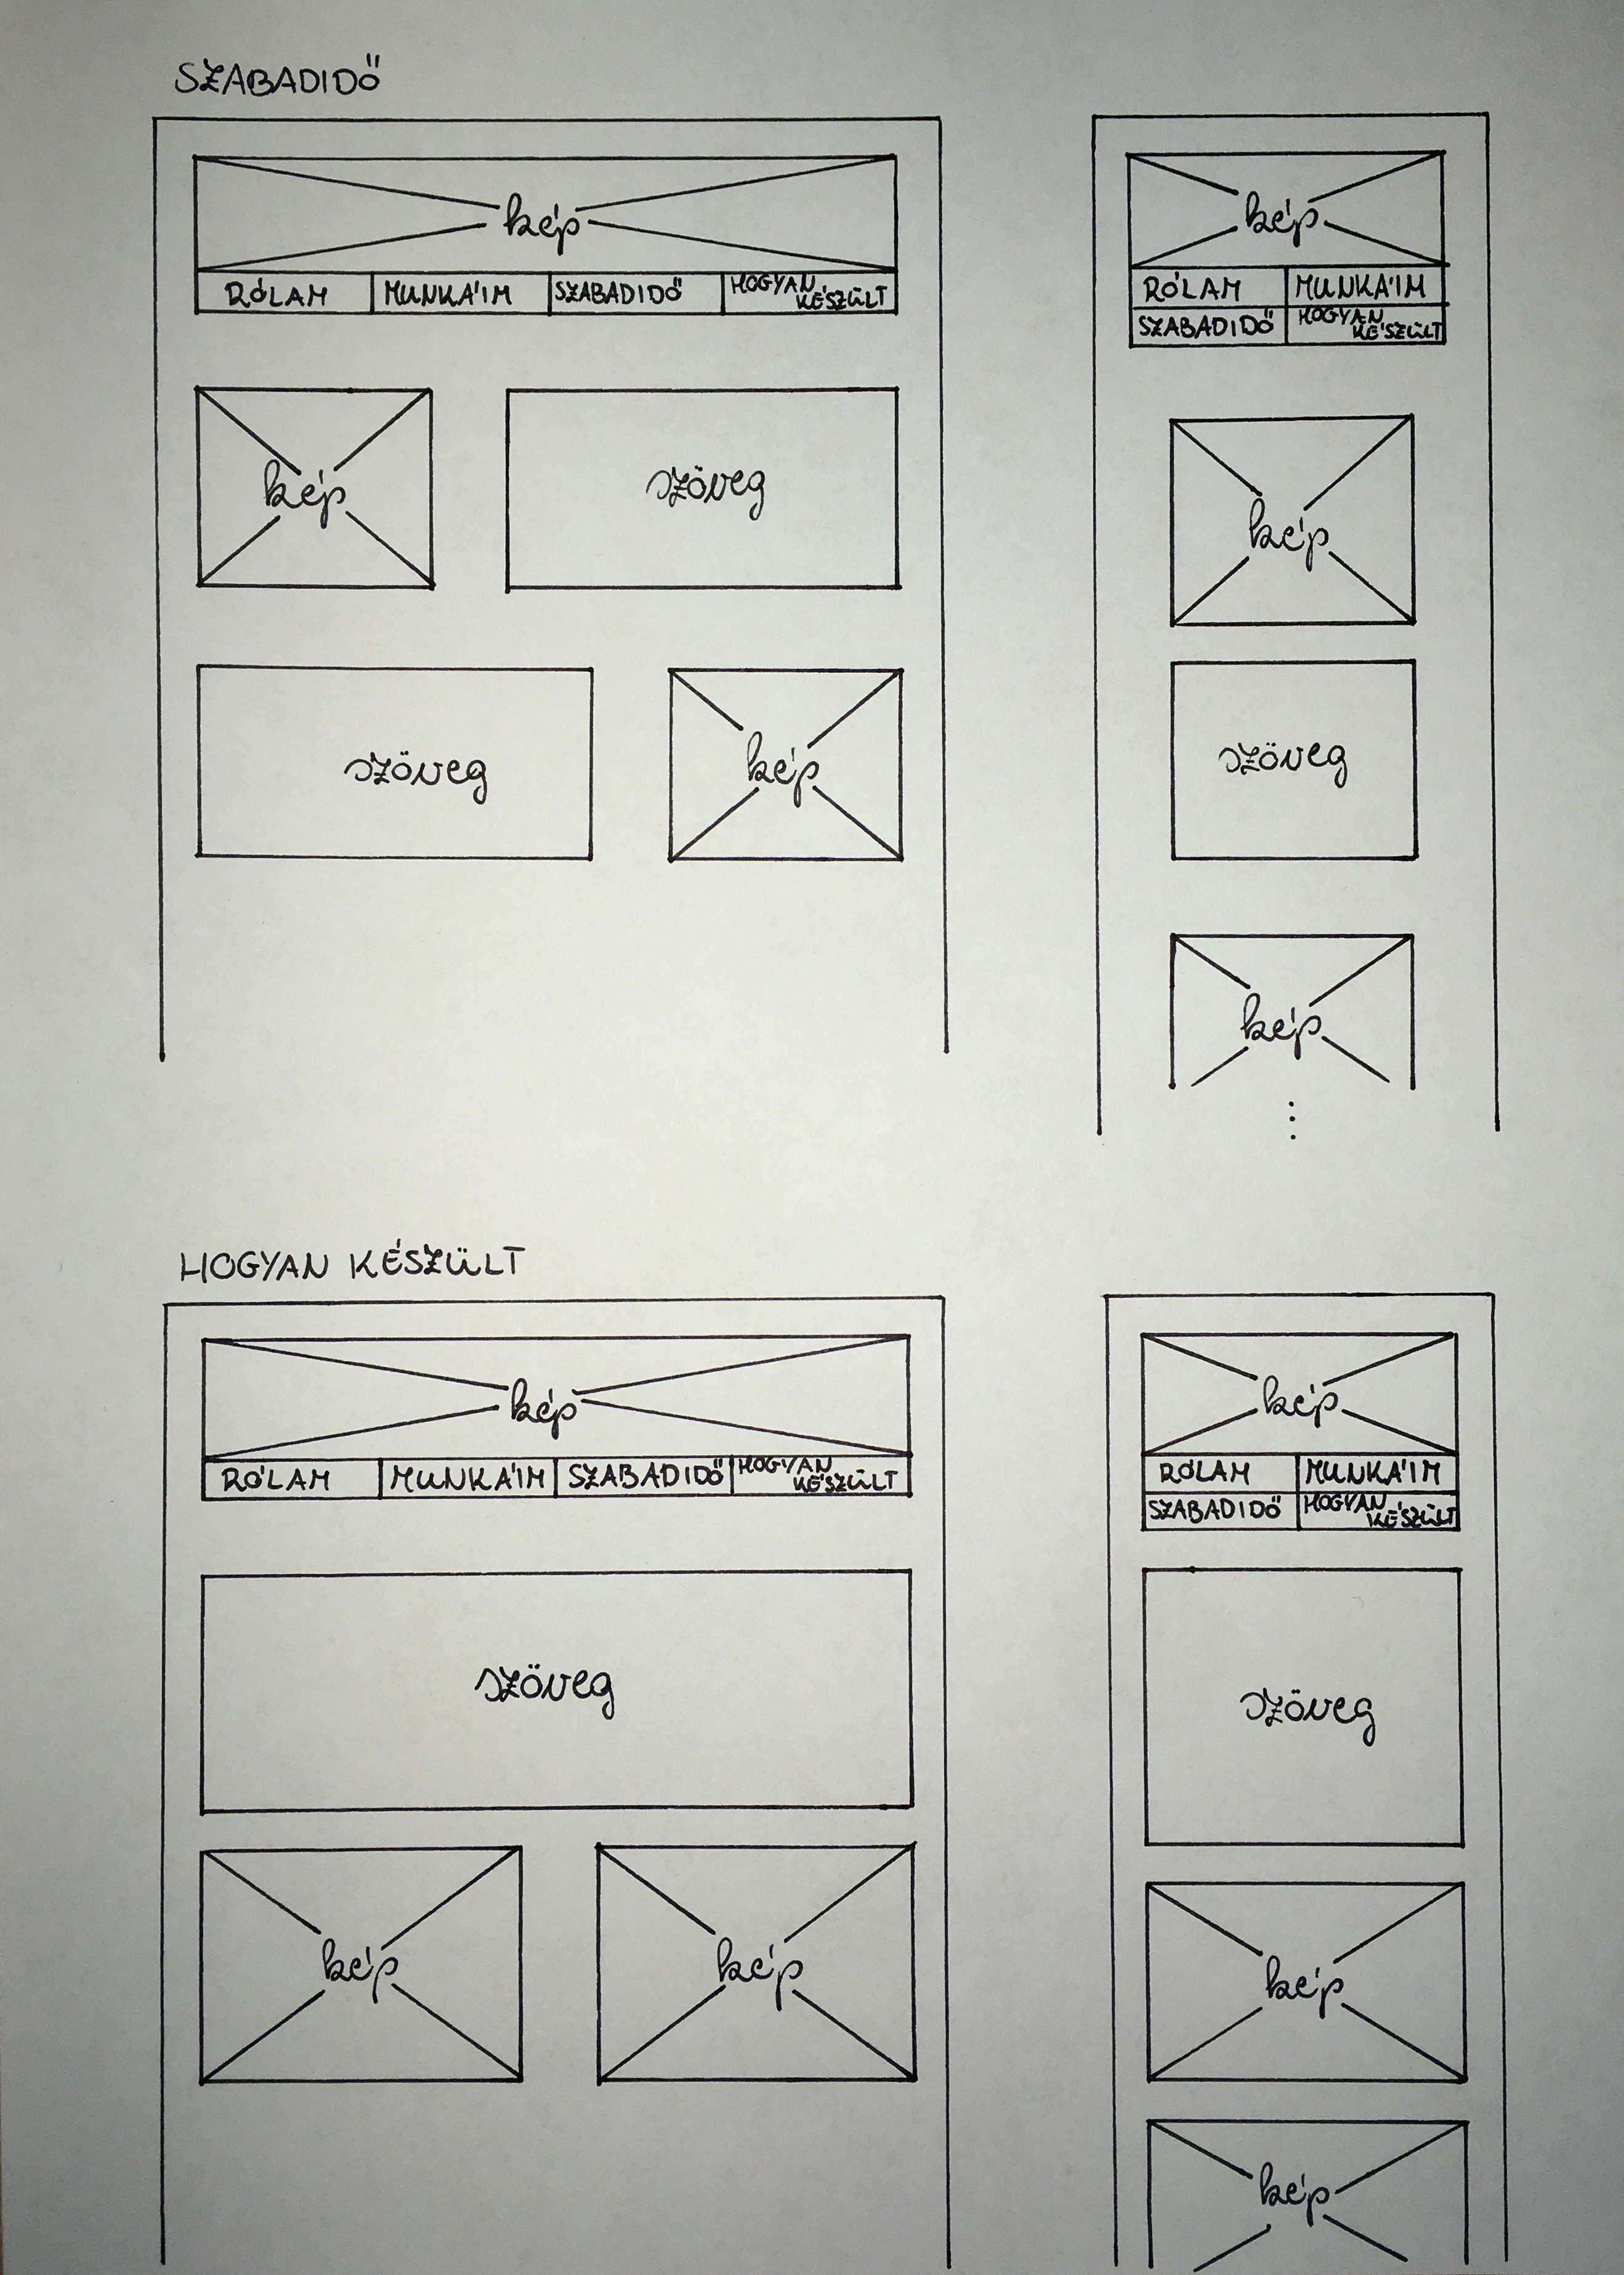 SZABADIDŐ
kép
RÓLAM MUNKÁIM SZABADIDŐ HOGYAN
KÉSZÜLT
kép szöveg
szöveg kép
kép
RÓLAM MUNKÁIM
SZABADIDŐ HOGYAN
KÉSZÜLT
kép
szöveg
kép
HOGYAN KÉSZÜLT
kép
RÓLAM MUNKÁIM SZABADIDŐ HOGYAN
KÉSZÜLT
szöveg
kép kép
kép
RÓLAM MUNKÁIM
SZABADIDŐ HOGYAN
KÉSZÜLT
szöveg
kép
kép